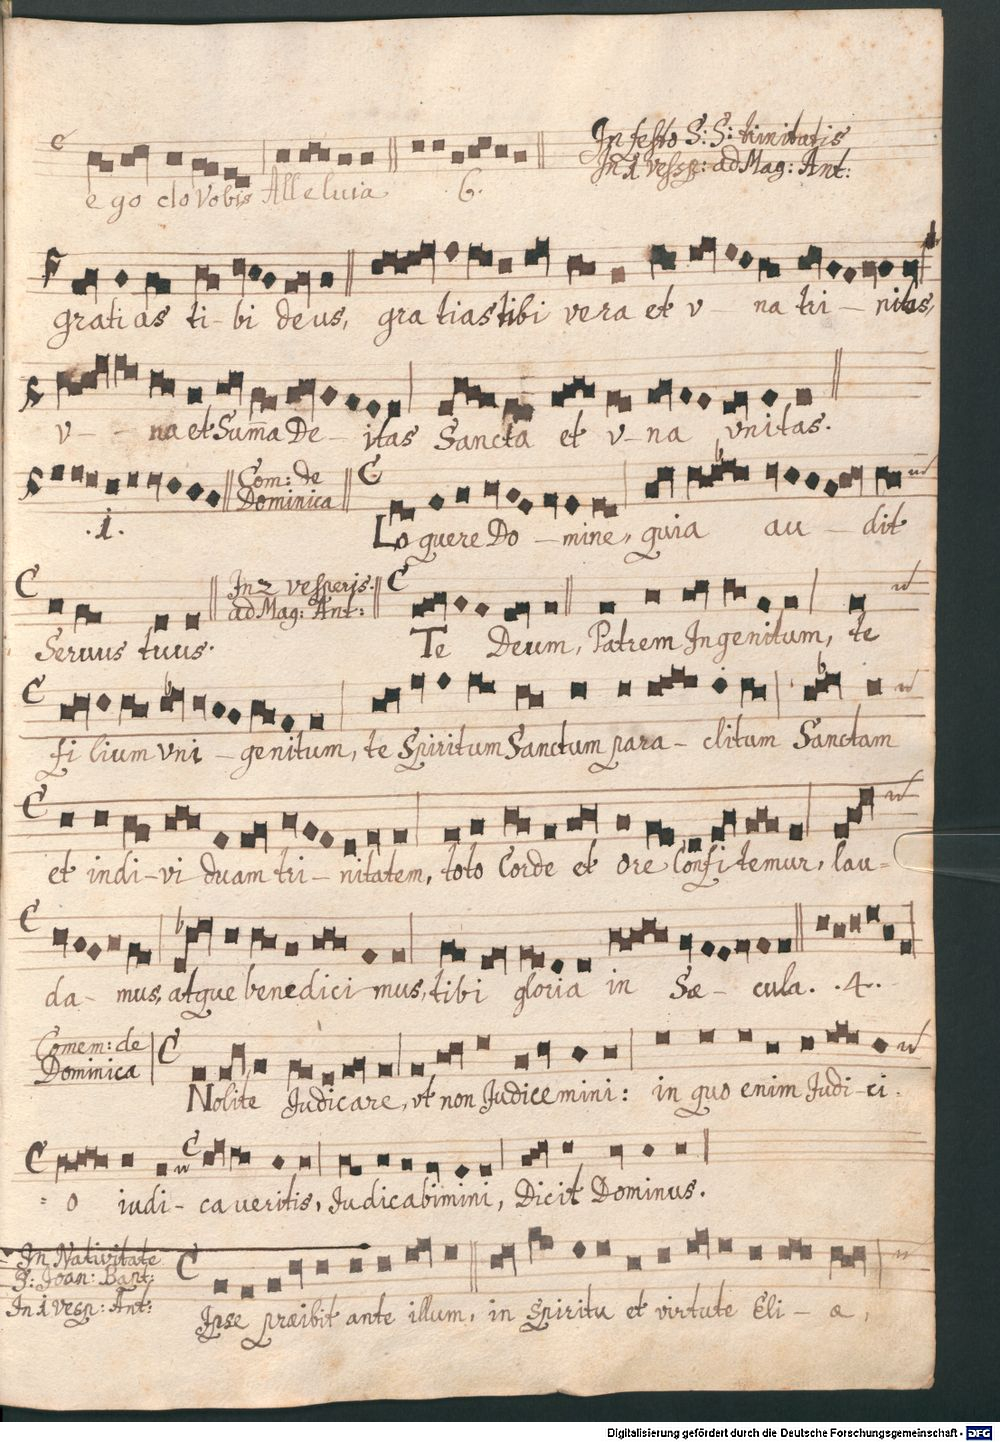 In festo S: S: trinitatis
In 1 vesp: ad Mag: Ant:
ego do Vobis Alleluia 6.
gratias ti-bi deus, gratias tibi vera et v - na tri - nitas,
v - - na et Sum̄a De - itas Sancta et v-na vnitas.
Com: de
Dominica
.1. Loquere Do - mine, quia au - dit
In 2 vesperis.
ad Mag: Ant:
Seruus tuus. Te Deum, Patrem Ingenitum, te
fi lium vni - genitum, te Spiritum Sanctum para - clitum Sanctam
et indi-vi duam tri - nitatem, toto Corde et ore Confitemur, lau=
da - mus, atque benedici mus, tibi gloria in Sæ - cula. .4.
Comem: de
Dominica
Nolite Judicare, vt non Judicemini: in quo enim Judi-ci.
= o iudi - caueritis, Judicabimini, Dicit Dominus.
In Nativitate
S: Joan: Bapt:
In 1 vesp: Ant:
Ipse præibit ante illum, in Spiritu et virtute Eli - æ,
Digitalisierung gefördert durch die Deutsche Forschungsgemeinschaft - DFG